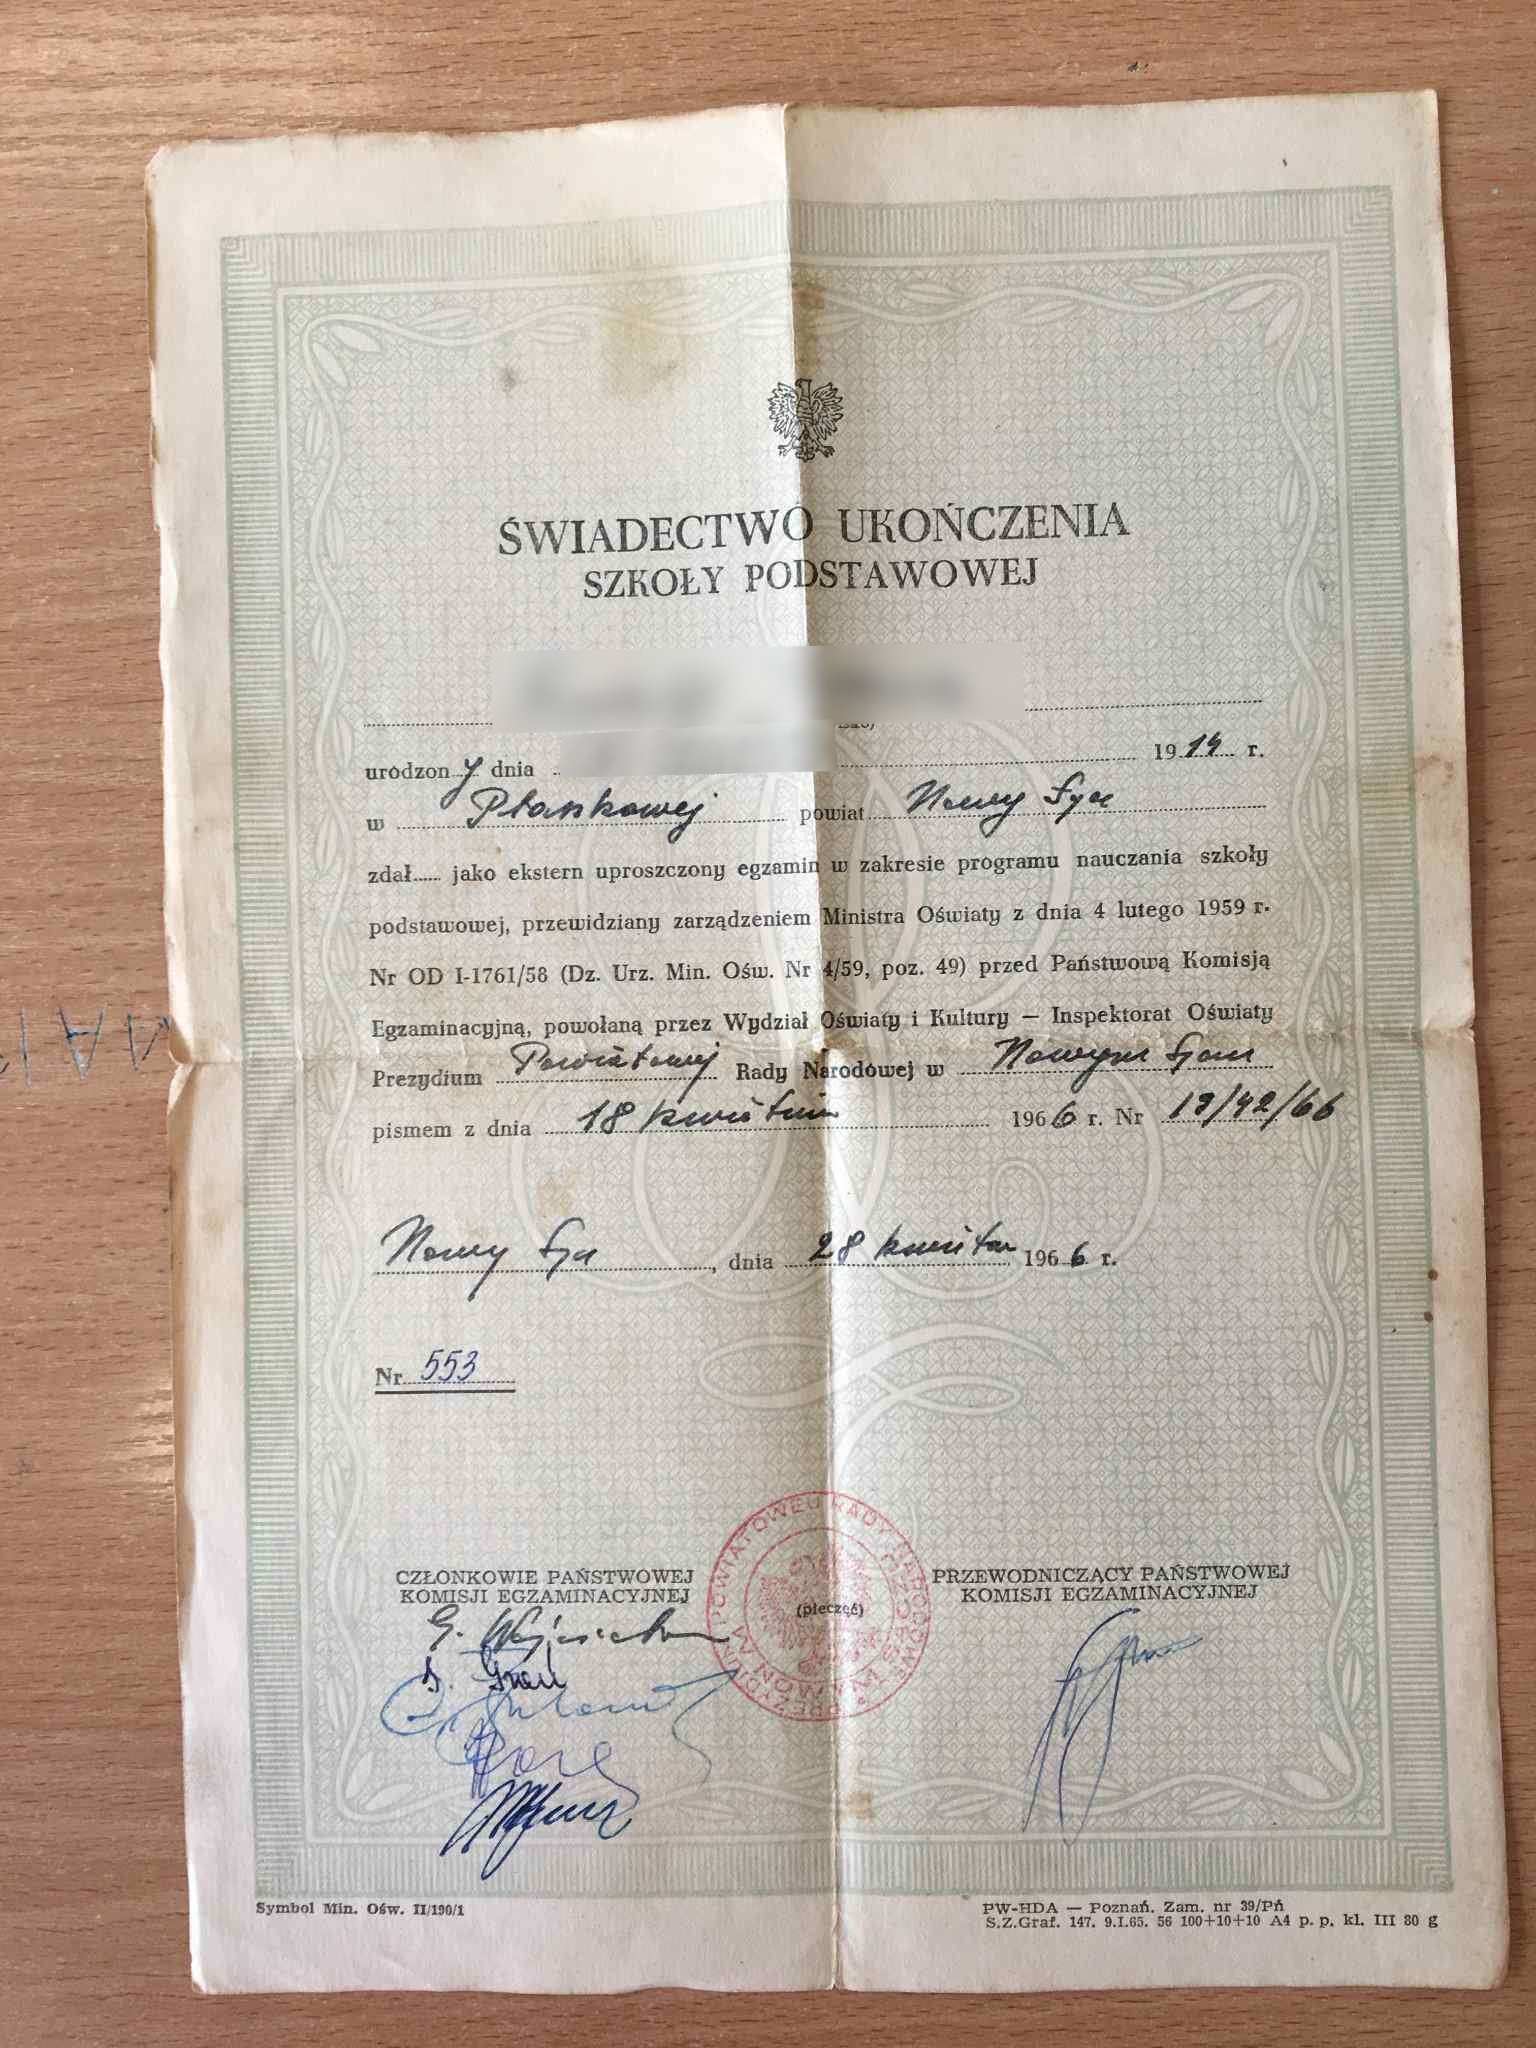 ŚWIADECTWO UKOŃCZENIA
SZKOŁY PODSTAWOWEJ
urodzony dnia 1914 r.
w Ptaszkowej powiat Nowy Sącz
zdał...... jako ekstern uproszczony egzamin w zakresie programu nauczania szkoły
podstawowej, przewidziany zarządzeniem Ministra Oświaty z dnia 4 lutego 1959 r.
Nr OD I-1761/58 (Dz. Urz. Min. Ośw. Nr 4/59, poz. 49) przed Państwową Komisją
Egzaminacyjną, powołaną przez Wydział Oświaty i Kultury — Inspektorat Oświaty
Prezydium Powiatowej Rady Narodowej w Nowym Sączu
pismem z dnia 18 kwietnia 1966 r. Nr 19/42/66
Nowy Sącz, dnia 28 kwietnia 1966 r.
Nr 553
CZŁONKOWIE PAŃSTWOWEJ
KOMISJI EGZAMINACYJNEJ
(pieczęć)
PRZEWODNICZĄCY PAŃSTWOWEJ
KOMISJI EGZAMINACYJNEJ
PREZYDIUM POWIATOWEJ RADY NARODOWEJ
Symbol Min. Ośw. II/190/1
PW-HDA — Poznań. Zam. nr 39/Pń
S.Z.Graf. 147. 9.I.65. 56 100+10+10 A4 p. p. kl. III 80 g